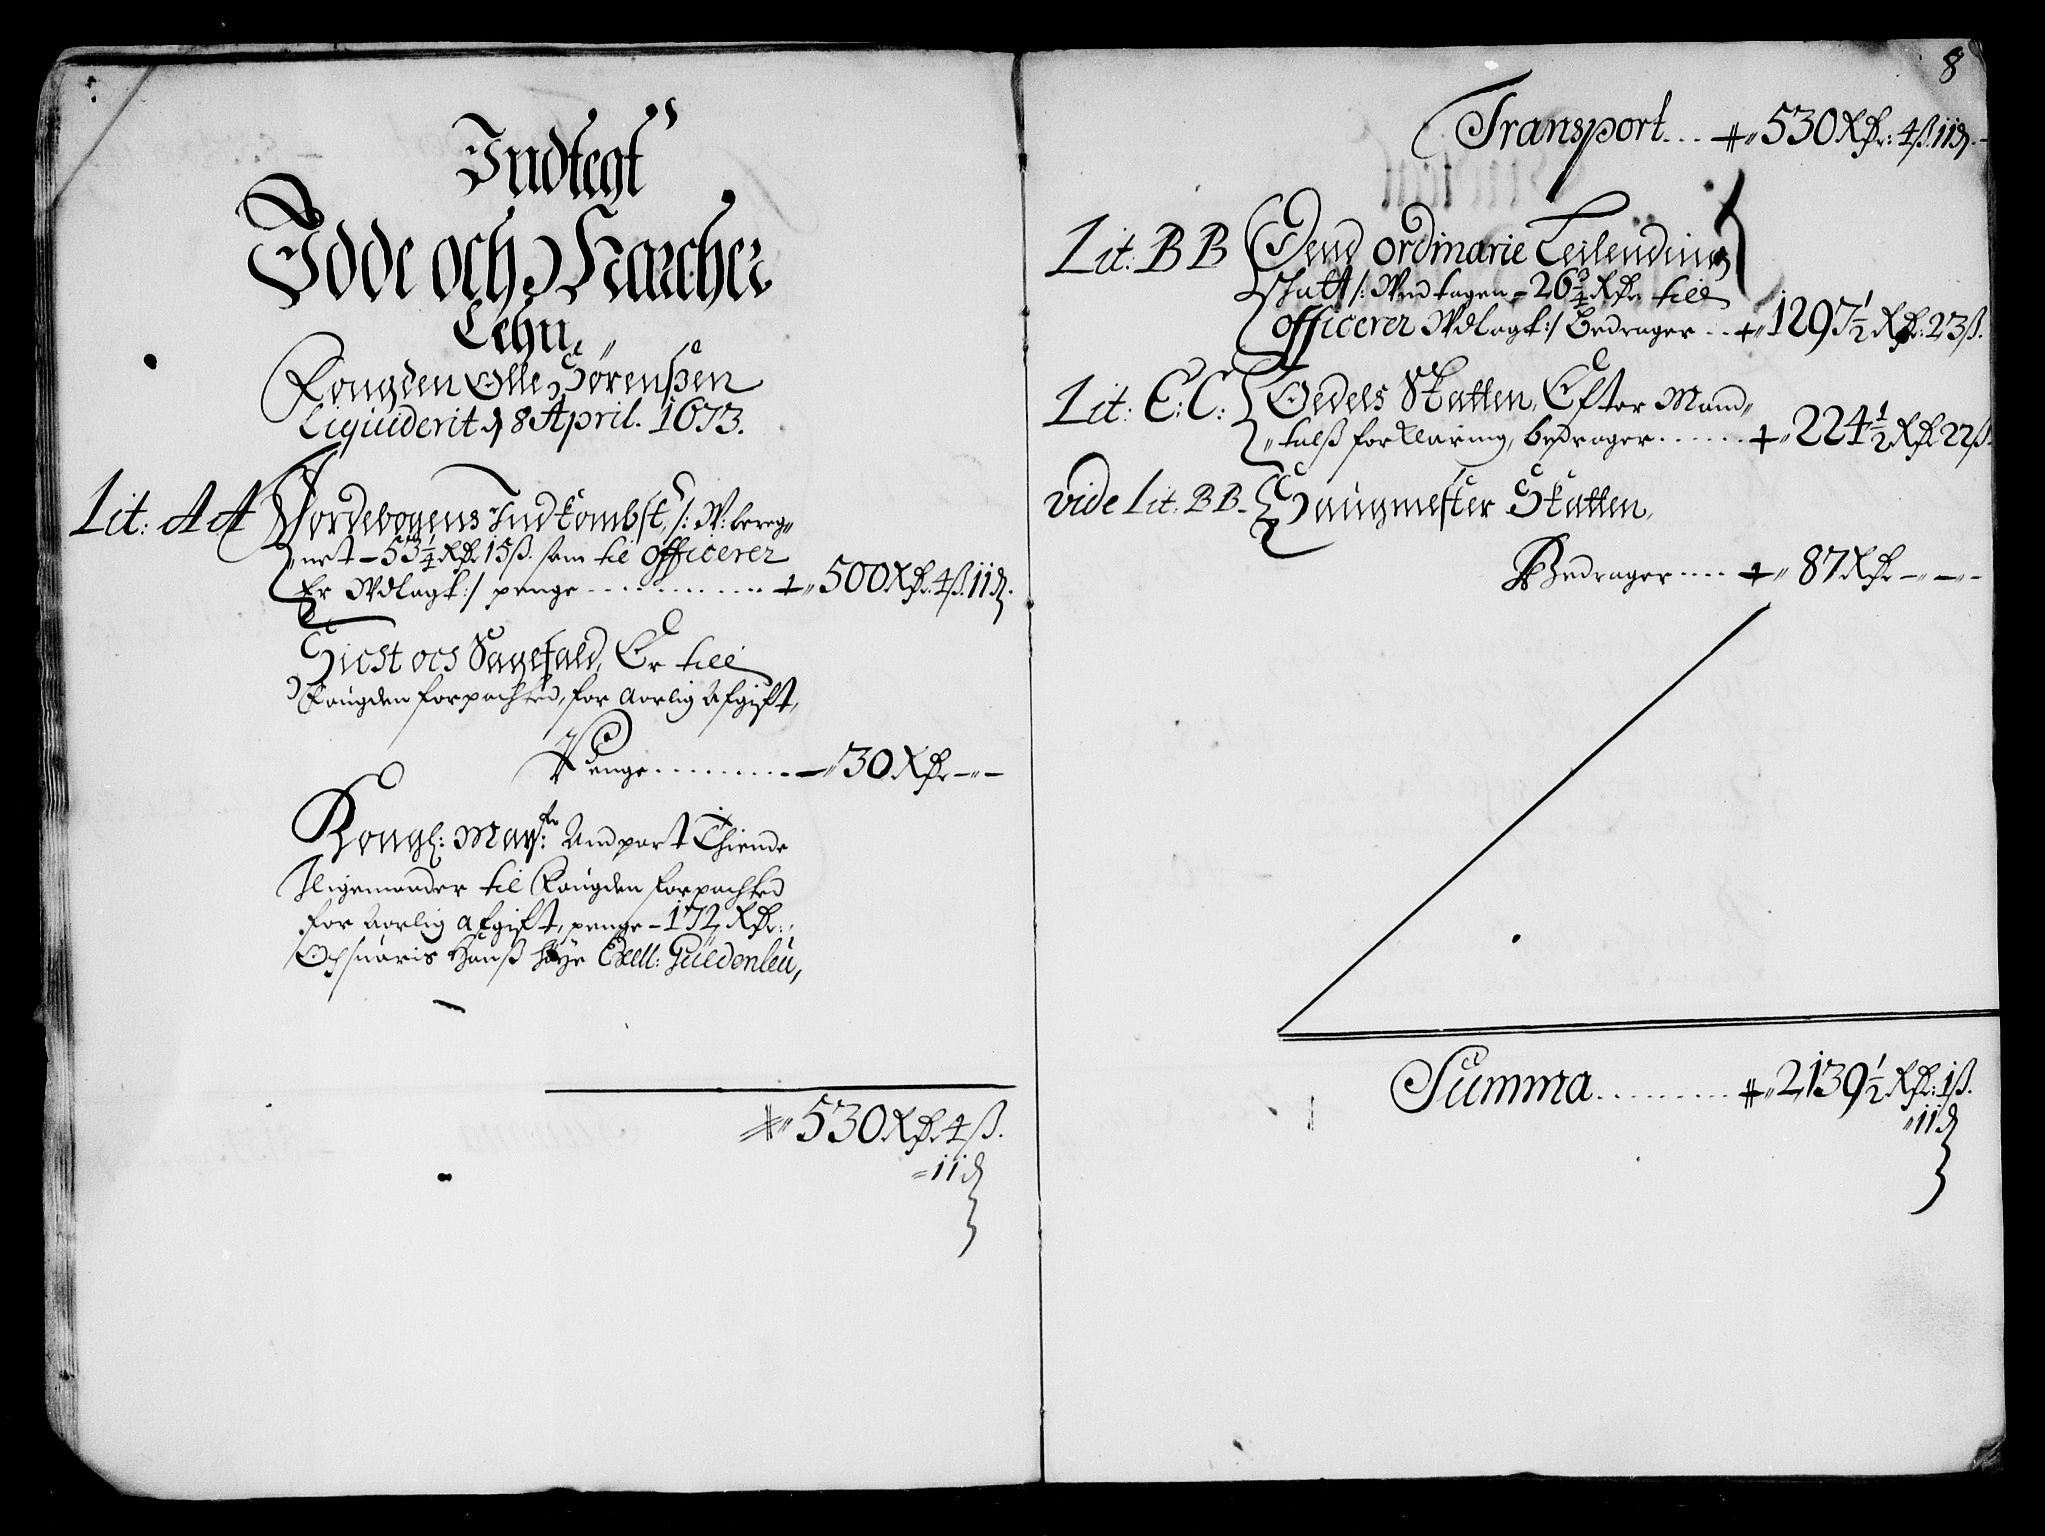 Indtegt
Idde och Marcher
Lehn,
Fougden Olle Sørenßen
Liquiderit d 8 April. 1673.
Lit: AA Jordebogens Indkombst, /: U-bereg-
net - 53 1/4 Rdr 15 ß. som til officerer
Er Udlagt :/ penge ............ 500 Rdr. 4 ß. 11 d.
Sicst och Sagefald, Er till
Fougden forpachted, for Aarlig Afgift,
Penge ......... 30 Rdr - - -
Kongl: May: Andpart Thiende
Iligemaader til Fougden forpachted
for Aarlig Afgift, penge - 172 Rdr:
Hans høye Excell: Güldenleu,
530 Rdr 4 ß.
11 d
8
Transport ... 530 Rdr: 4 ß. 11 d. -
Lit: BB Dend ordinarie Leilending
Skatt /: Und tagen - 26 3/4 Rdr till
officerer Udlagt :/ Bedrager .. 1297 1/2 Rdr: 23 ß.
Lit: C: C: Oedels Skatten, Efter Mand-
talß forklaring, bedrager ...... 224 1/2 Rdr 22 ß.
vide Lit. BB - Saugmester Skatten,
Bedrager .... 87 Rdr - - -
Summa ......... 2139 1/2 Rdr: 1 ß.
11 d